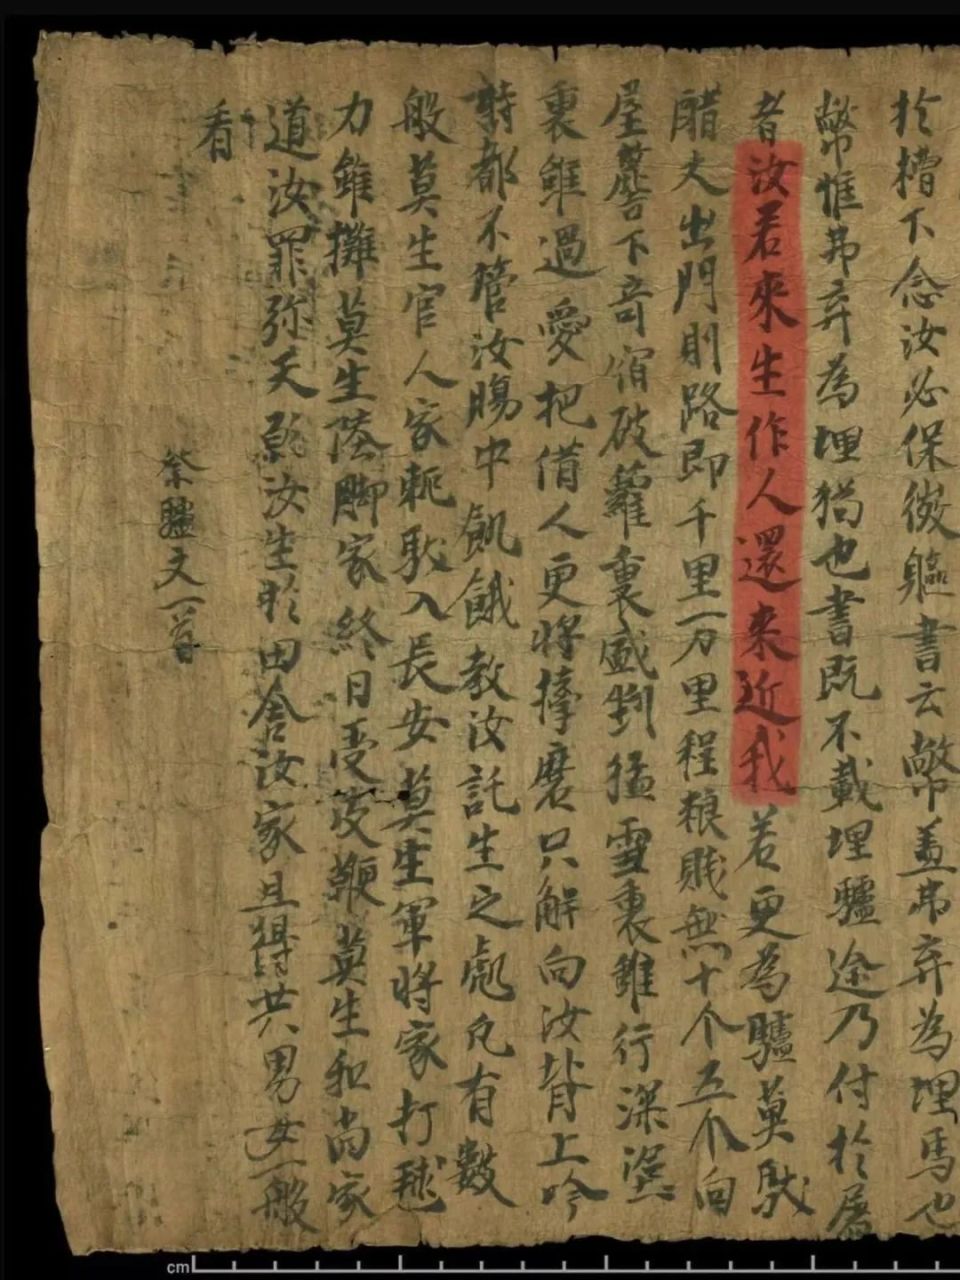 於槽下念汝必保微軀書云弊盖弗弃為埋馬也
弊惟弗弃為埋猫也書既不載埋驢途乃付於屠
者汝若來生作人還来近我若更為驢莫馱
醋大出門則路即千里一万里程粮賤無十个五个向
屋簷下寄宿破籮裏盛剉猛雪裏雖行深溺
裏雖過愛把借人更將捧磨只解向汝背上吟
詩都不管汝腸中飢餓教汝託生之處凡有數
般莫生官人家軛馱入長安莫生軍將家打毬
力雖攤莫生陸脚家終日受皮鞭莫生和尚家
道汝罪弥天願汝生於田舍汝家且得共男女一般
看
祭驢文一首
cm